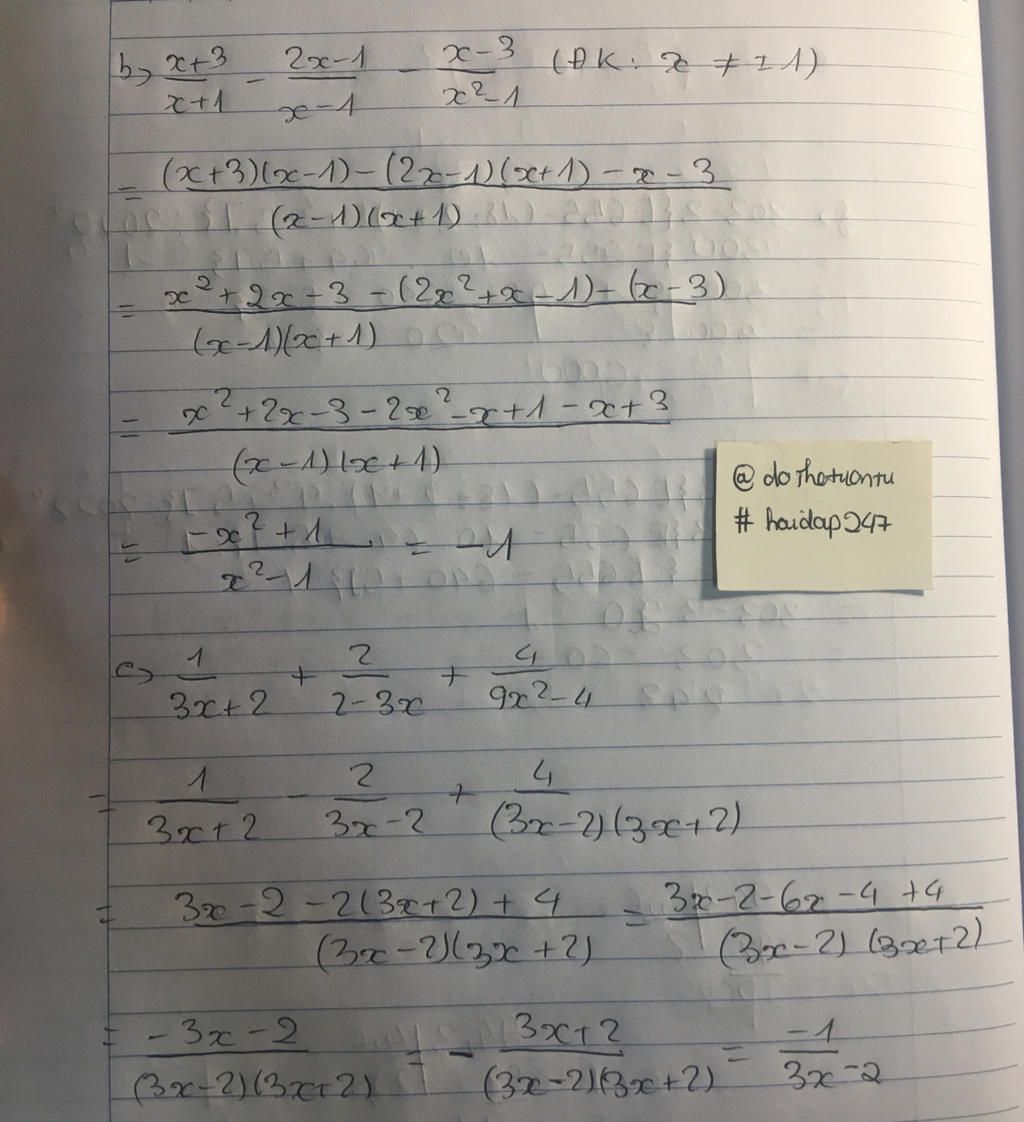 b, \frac{x+3}{x+1} - \frac{2x-1}{x-1} - \frac{x-3}{x²-1} (ĐK: x ≠ ±1)
= \frac{(x+3)(x-1)-(2x-1)(x+1)-x-3}{(x-1)(x+1)}
= \frac{x²+2x-3-(2x²+x-1)-(x-3)}{(x-1)(x+1)}
= \frac{x²+2x-3-2x²-x+1-x+3}{(x-1)(x+1)}
= \frac{-x²+1}{x²-1} = -1
@dothetuantu
#hoidap247
c, \frac{1}{3x+2} + \frac{2}{2-3x} + \frac{4}{9x²-4}
= \frac{1}{3x+2} - \frac{2}{3x-2} + \frac{4}{(3x-2)(3x+2)}
= \frac{3x-2-2(3x+2)+4}{(3x-2)(3x+2)} = \frac{3x-2-6x-4+4}{(3x-2)(3x+2)}
= \frac{-3x-2}{(3x-2)(3x+2)} = - \frac{3x+2}{(3x-2)(3x+2)} = \frac{-1}{3x-2}